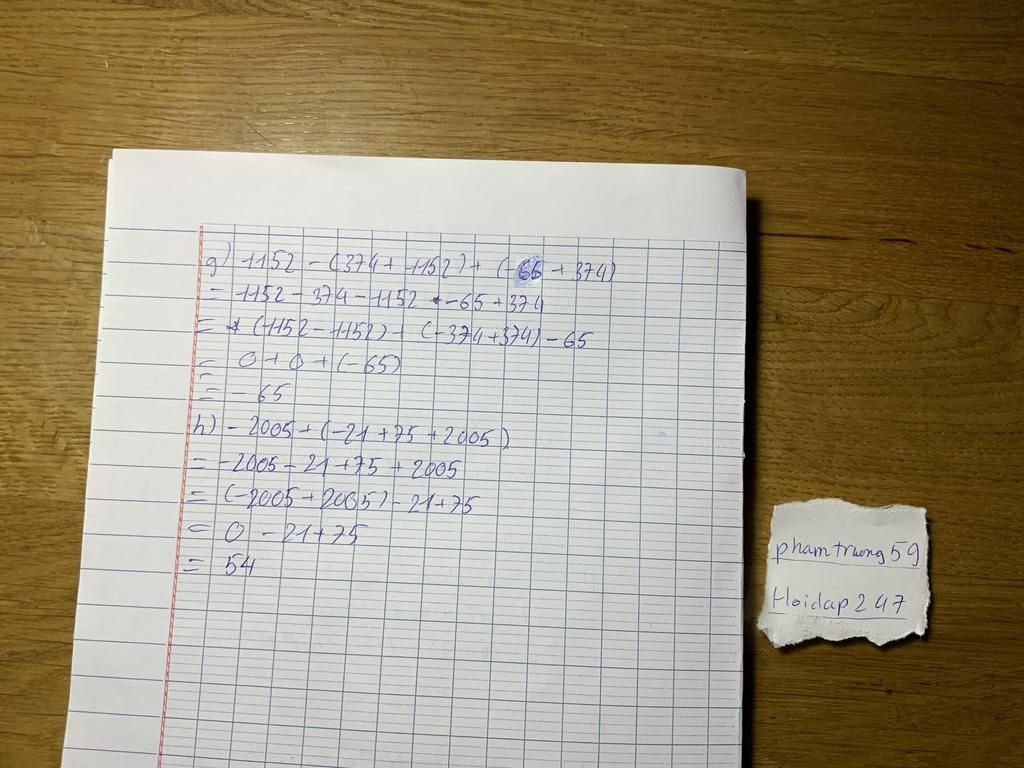 g) 1152 - (374 + 1152) + (-65 + 374)
= 1152 - 374 - 1152 - 65 + 374
= (1152 - 1152) + (-374 + 374) - 65
= 0 + 0 + (-65)
= - 65
h) - 2005 + (-21 + 75 + 2005)
= -2005 - 21 + 75 + 2005
= (-2005 + 2005) - 21 + 75
= 0 - 21 + 75
= 54
phamtruong59
Hoidap247